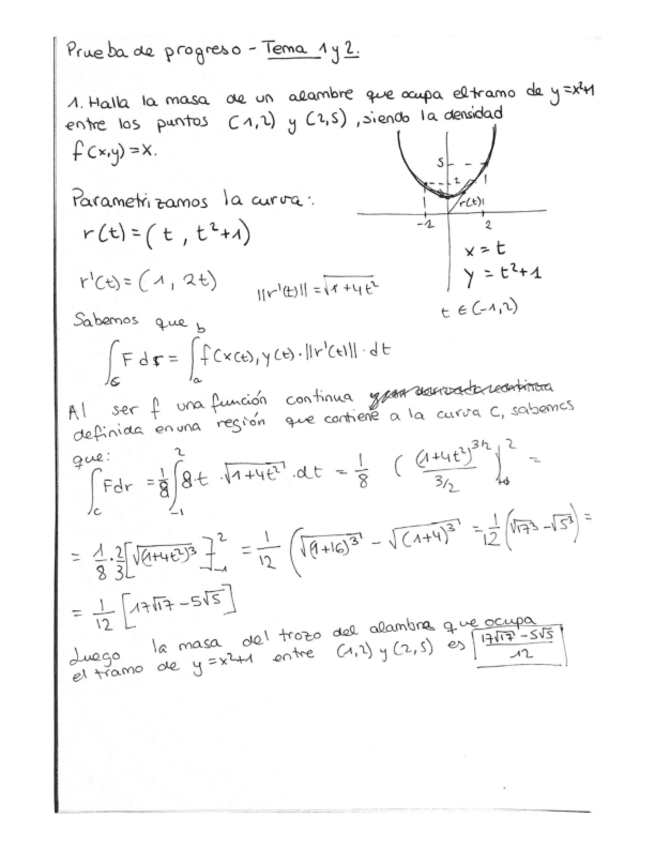 Prueba de progreso - Tema 1 y 2.
1. Halla la masa de un alambre que ocupa el tramo de y=x²+1
entre los puntos (1,2) y (2,5), siendo la densidad
f(x,y)=x.
5
2
r(t)
-1
2
Parametrizamos la curva:
r(t)=(t, t²+1)
x=t
y=t²+1
t∈(-1,2)
r'(t)=(1, 2t)
||r'(t)||=√1+4t²
Sabemos que
∫_C F dr = ∫_a^b f(x(t),y(t)·||r'(t)||·dt
Al ser f una función continua
definida en una región que contiene a la curva C, sabemos
que:
∫_C Fdr = 1/8 ∫_-1^2 8·t·√1+4t²·dt = 1/8 ((1+4t²)^3/2 / 3/2)]^2 =
= 1/8·2/3[√(1+4t²)³]_-1^2 = 1/12 (√(1+16)³ - √(1+4)³ = 1/12 (√17³ - √5³) =
= 1/12 [17√17 - 5√5]
Luego la masa del trozo del alambre que ocupa
el tramo de y=x²+1 entre (1,2) y (2,5) es 17√17 - 5√5 / 12